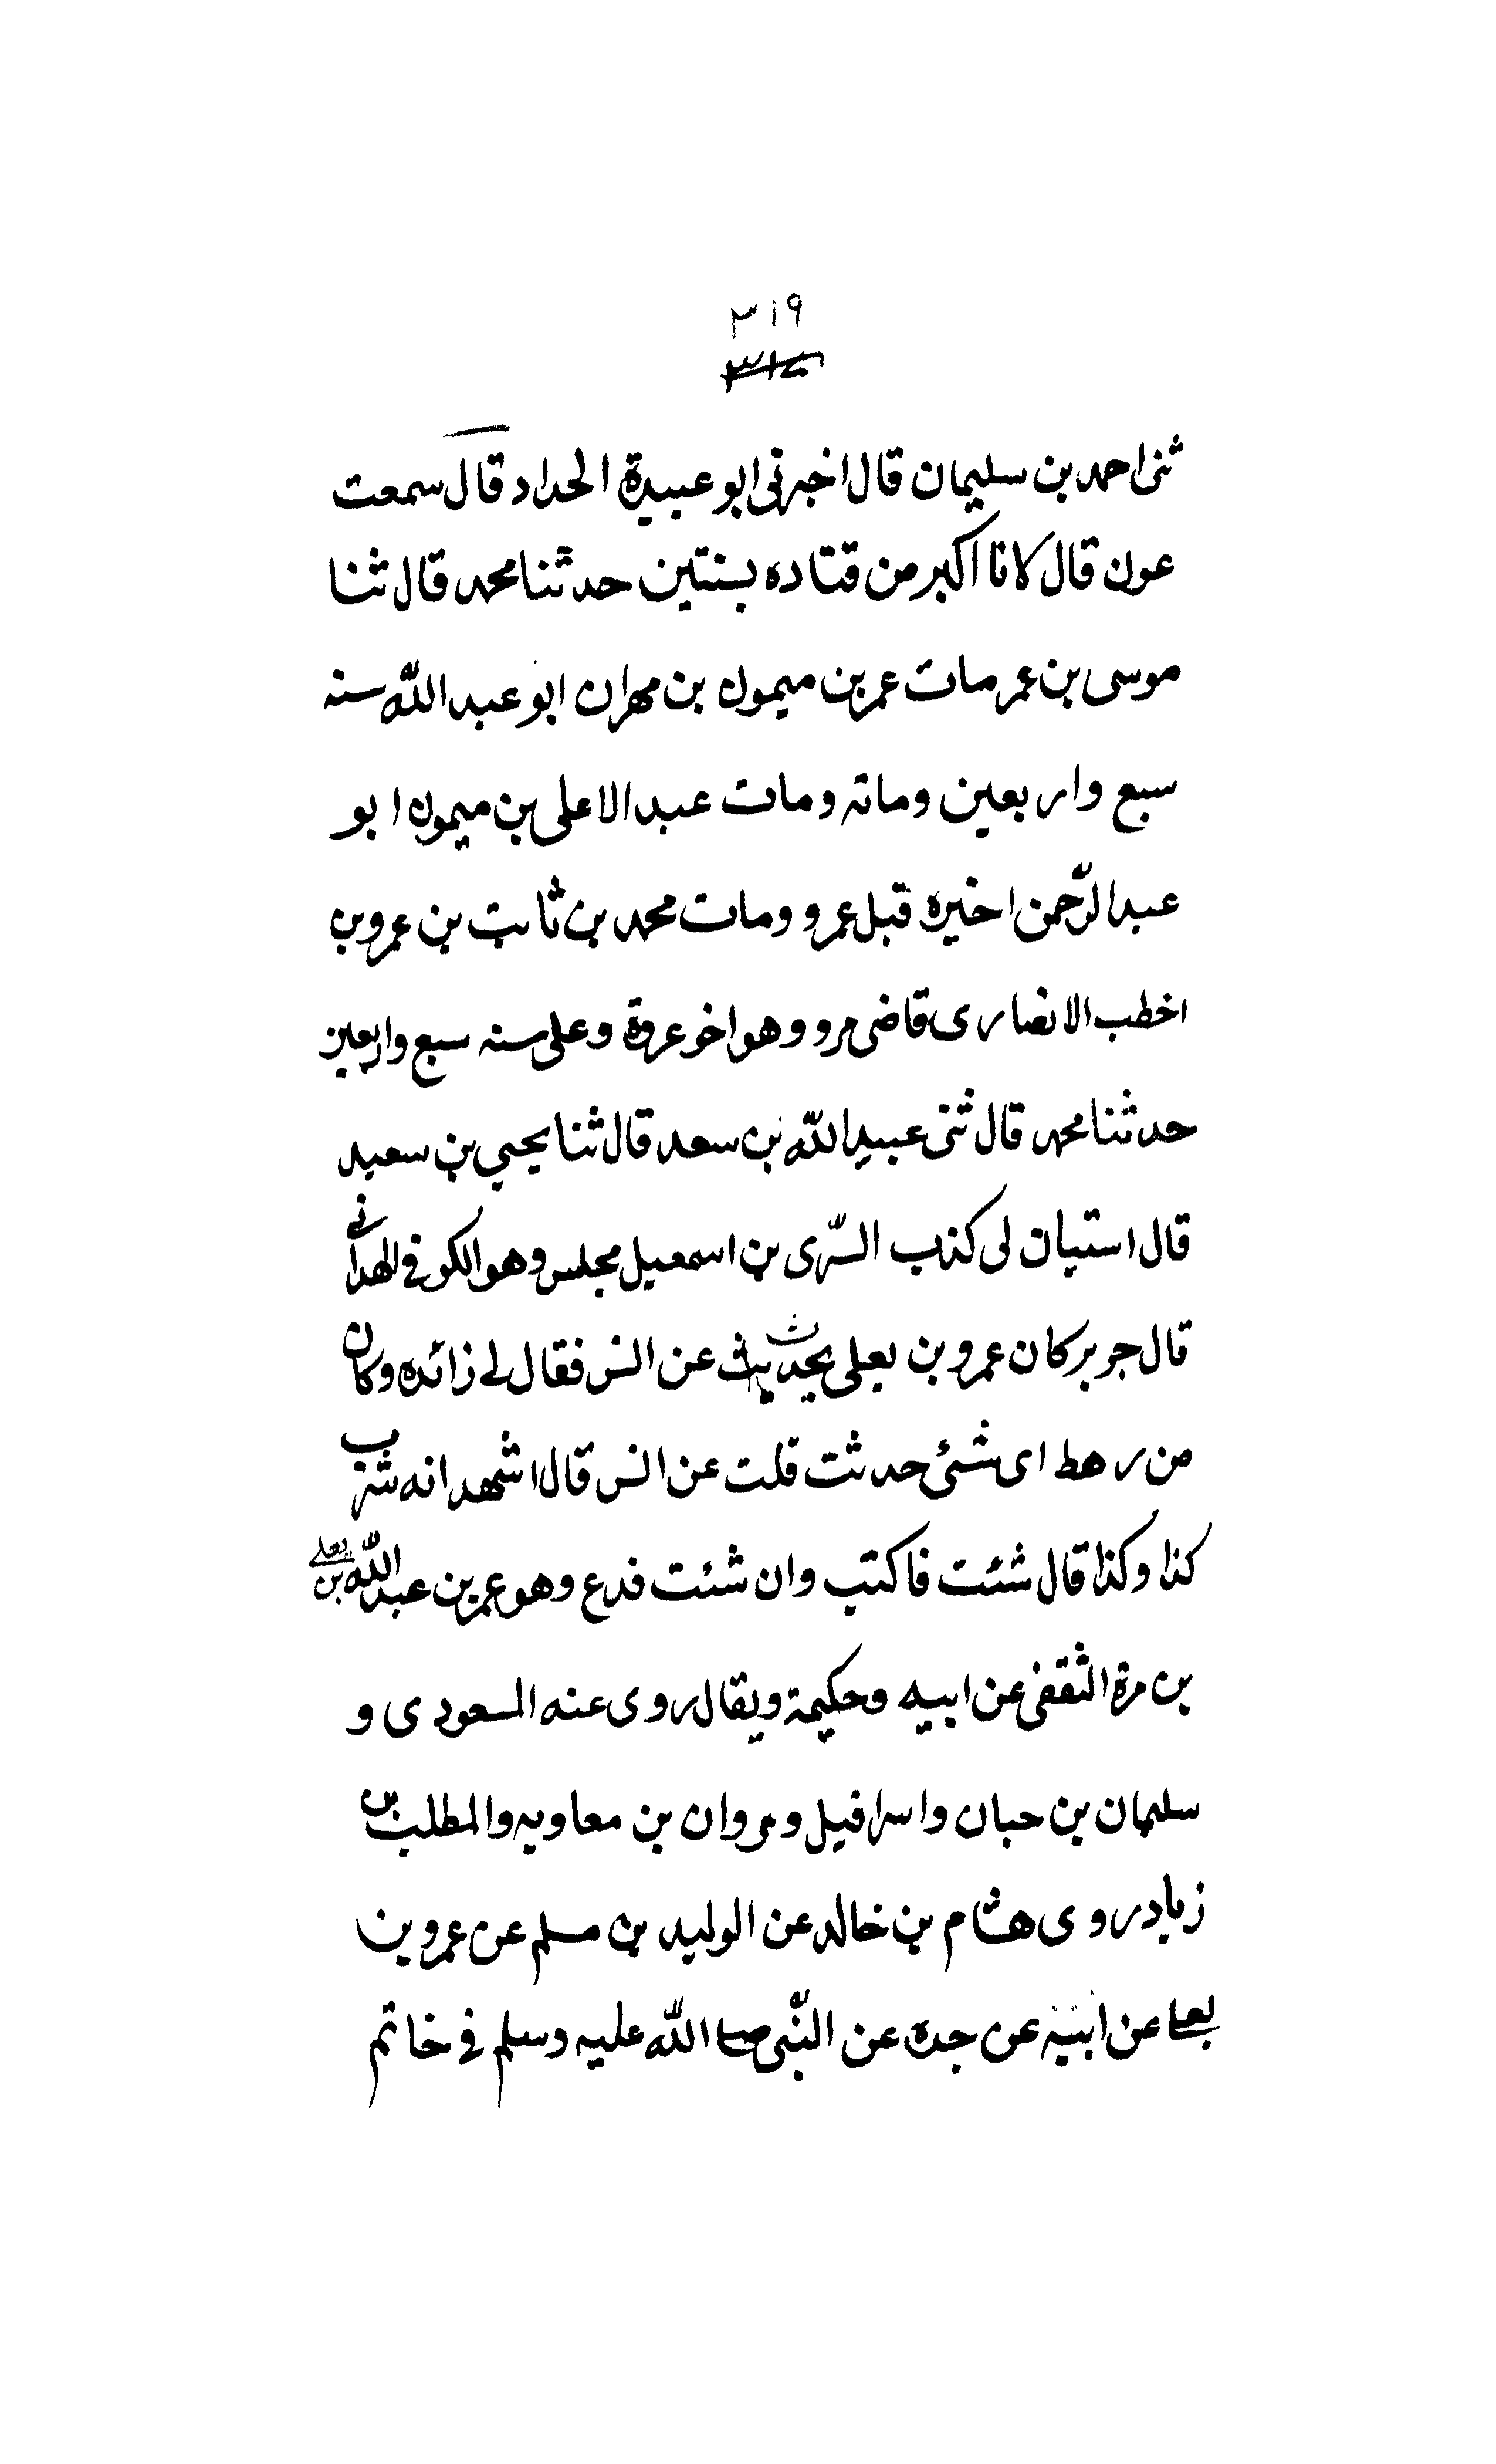 ٣١٩
٣١٧
ثنى احمد بن سليمان قال اخبرنى ابو عبيدة الحداد قال سمعت
عون قال كانا اكبر من قتاده بسنتين حدثنا محمد قال ثنا
موسى بن عمر مات عمر بن ميمون بن مهران ابو عبد الله سنه
سبع واربعين ومائة ومات عبد الاعلى بن ميمون ابو
عبد الرّحمن اخيره قبل عمرو ومات محمد بن ثابت بن عمرو بن
اخطب الانصارى قاضى مرو وهو اخو عروة وعلى سنه سبع واربعين
حدثنا محمد قال ثنى عبيد الله بن سعد قال ثنا يحيى بن سعيد
قال استبان لى كذب السّرى بن اسمعيل مجلس وهو الكوفى الهدانى
قال جرير كان عمرو بن يعلى يحدث عن انس فقال لى زائده وكان
من رهط اى شئ حدثت قلت عن انس قال اشهد انه شرب
كذا وكذا قال شئت فاكتب وان شئت فدع وهو عمر بن عبد الله بن يعلى
بن مرة الثقفى عن ابيه وحكيمة ويقال روى عنه المسعودى و
سليمان بن حبان واسرافيل ومروان بن معاويه والمطلب بن
زياد روى هشام بن خالد عن الوليد بن مسلم عن عمرو بن
يعلى عن ابيه عن جده عن النّبى صلى الله عليه وسلم فى خاتم